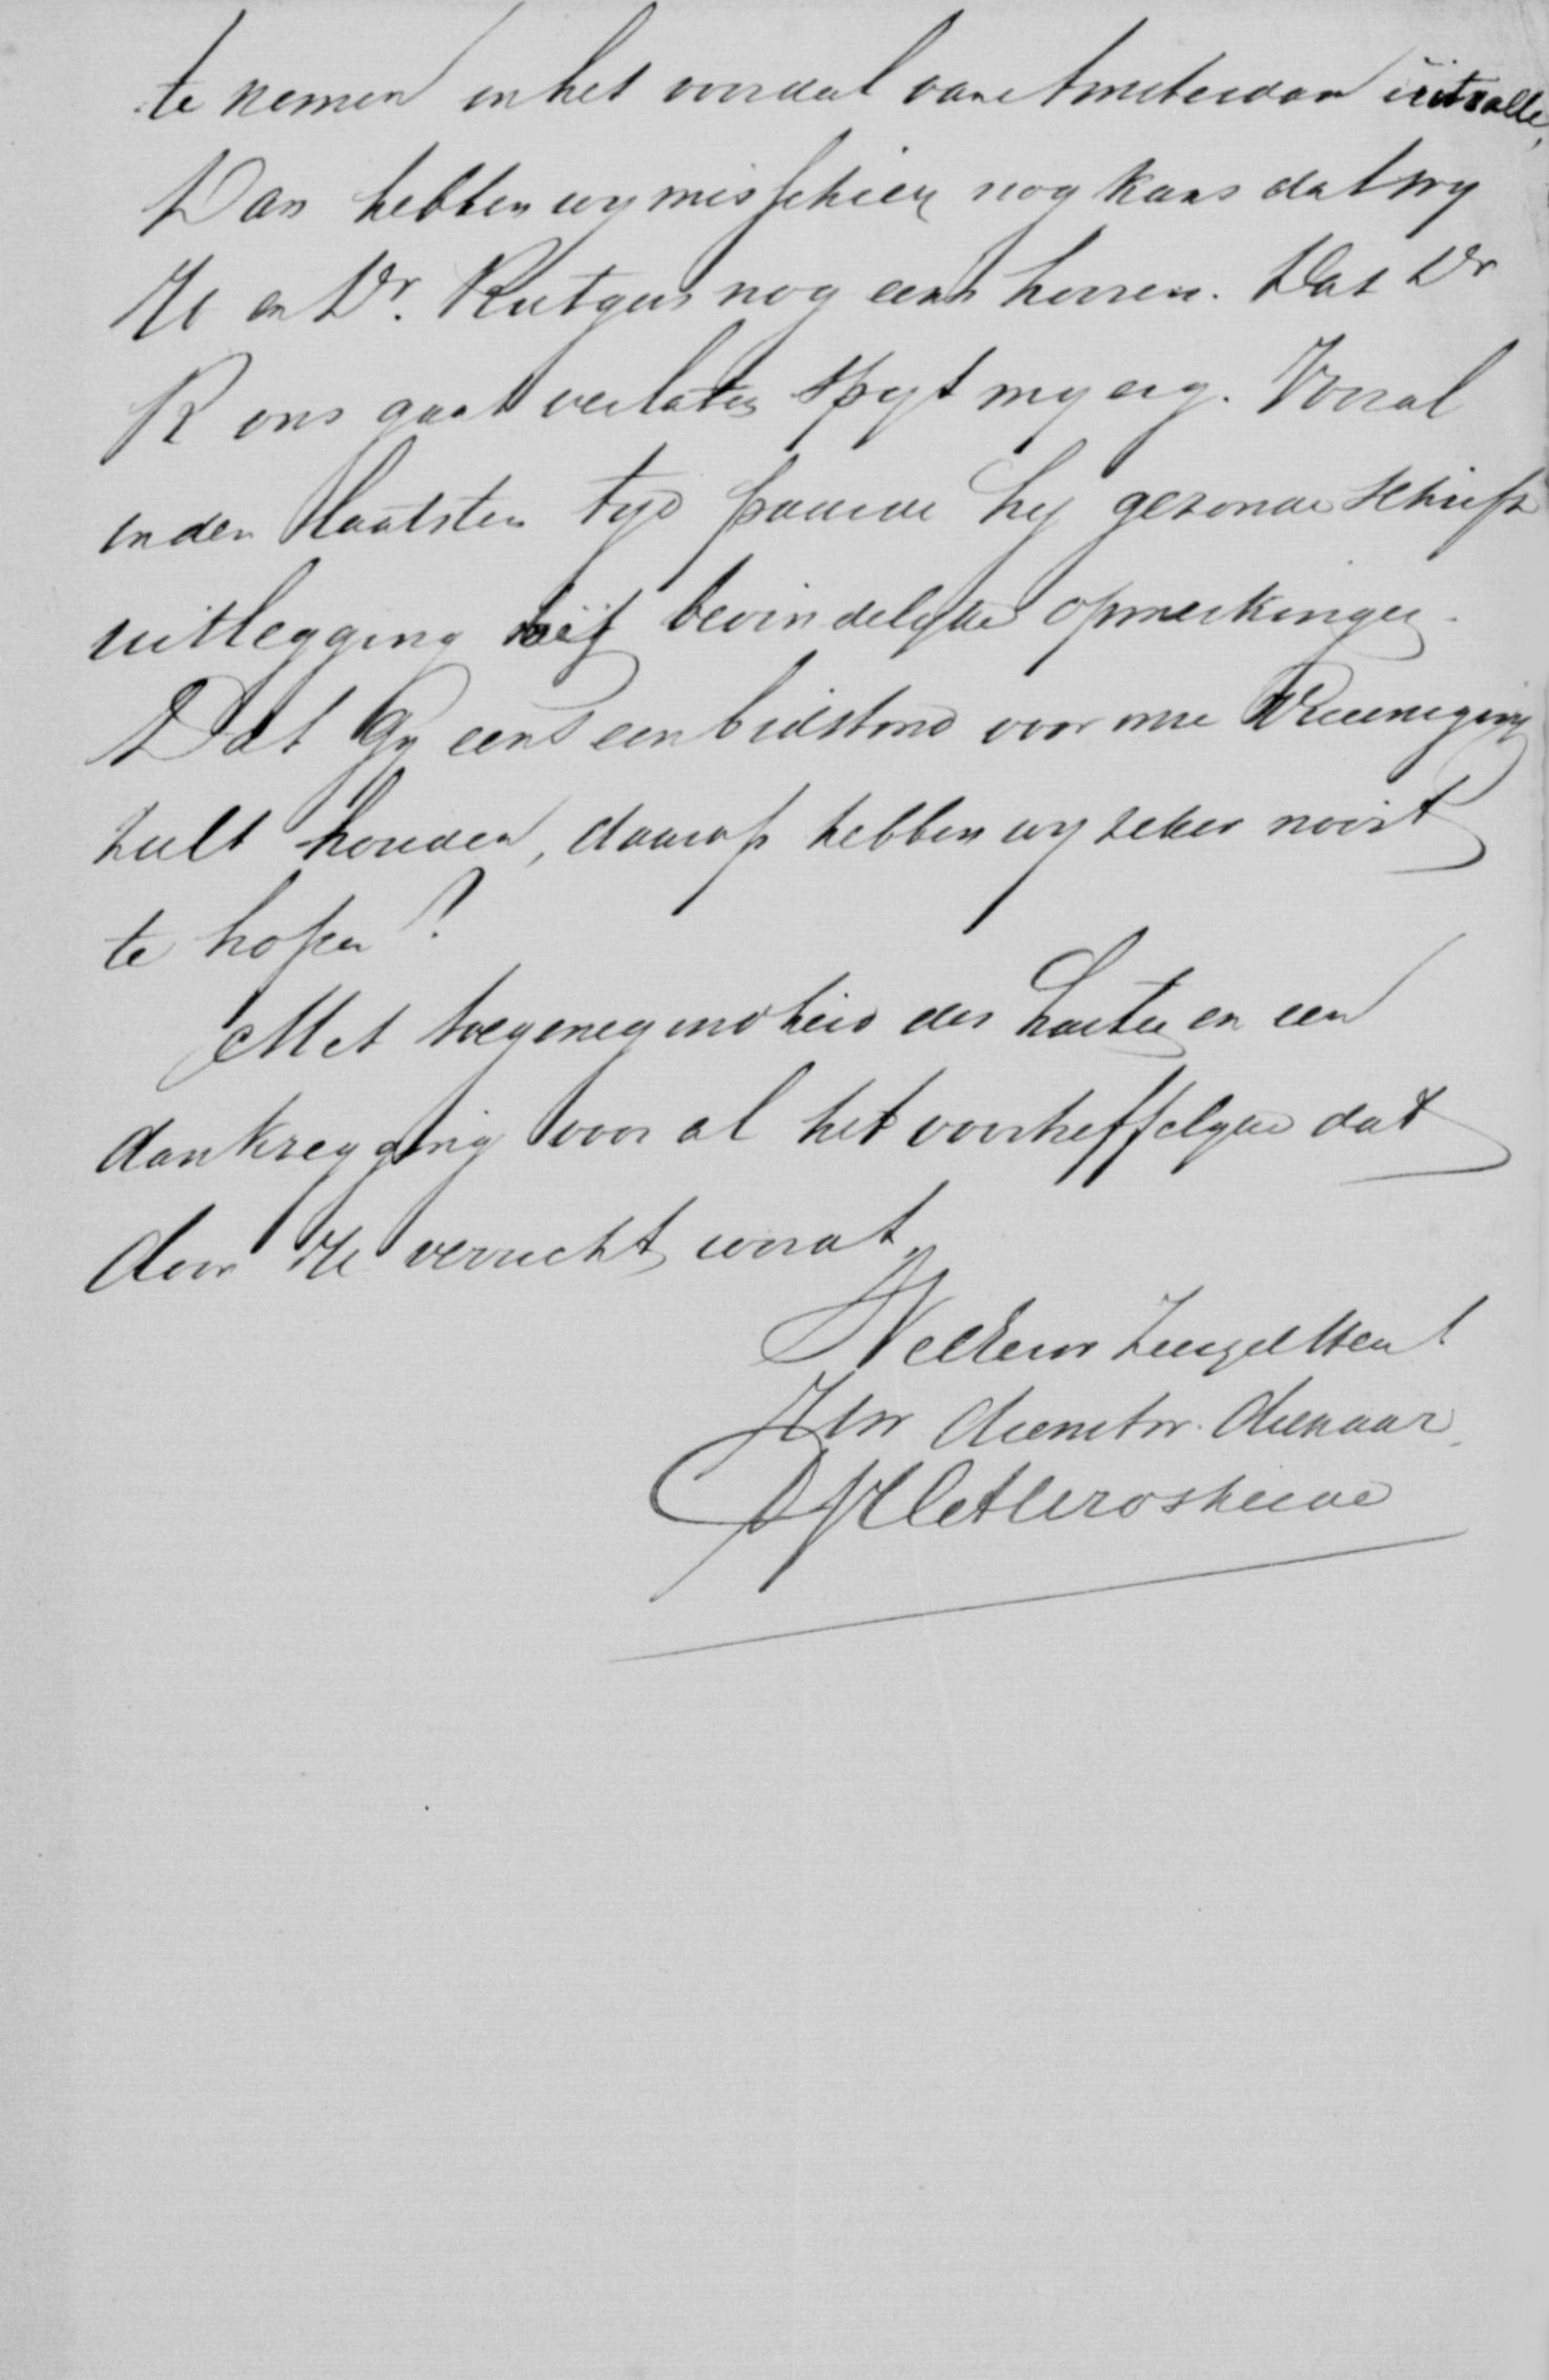 te nemen in het voordeel van Amsterdam uitvalle,
Dan hebben wy misschien nog kans dat wy
U en Dr. Rutgers nog eens hooren. Dat Dr
R ons gaat verlaten spyt my erg. Vooral
in den laatsten tyd paarde hy gezonde schrift
uitlegging bevindelyke opmerkingen.
Dat Gy eens een bidstond voor onze Vereeniging
zult houden, daarop hebben wy zeker nooit
te hopen?
Met toegenegendheid des harten en een
dankzegging voor al het voortreffelyke dat
door U verricht wordt
WelEerw
Uw dienstw. dienaar